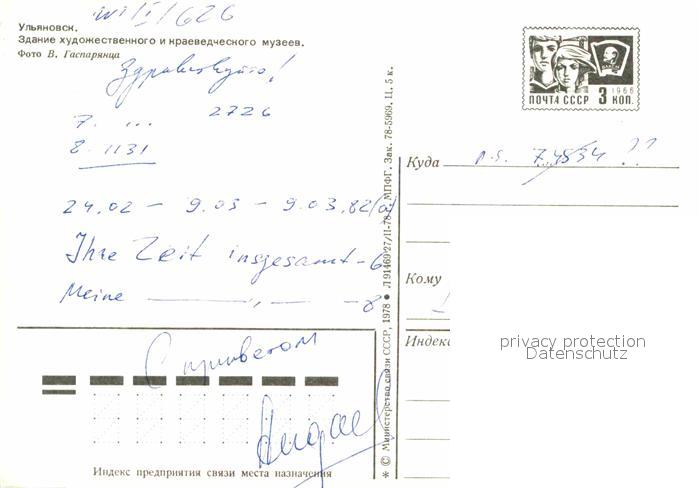 wi/I/626
Ульяновск.
Здание художественного и краеведческого музеев.
Фото В. Гаспарянца
Здравствуйте!
7. ... 2726
8. 1131
24.02 – 9.03 – 9.03.82
Ihre Zeit insgesamt – 6
Meine ——— " ——— – 8
С приветом
Индекс предприятия связи места назначения
* © Министерство связи СССР, 1978 • Л 91469 27/II-78 г. МПФГ. Зак. 78-5969. Ц. 5 к.
ПОЧТА СССР 3 КОП.
1966
Куда p.s. 7. 4534 ??
Кому
Индекс
privacy protection
Datenschutz